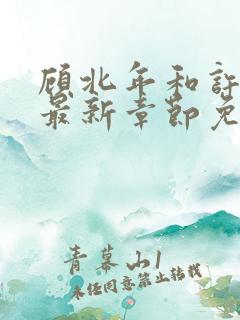 顾北年和许
最新章节免
青幕山1
未经同意禁止转载